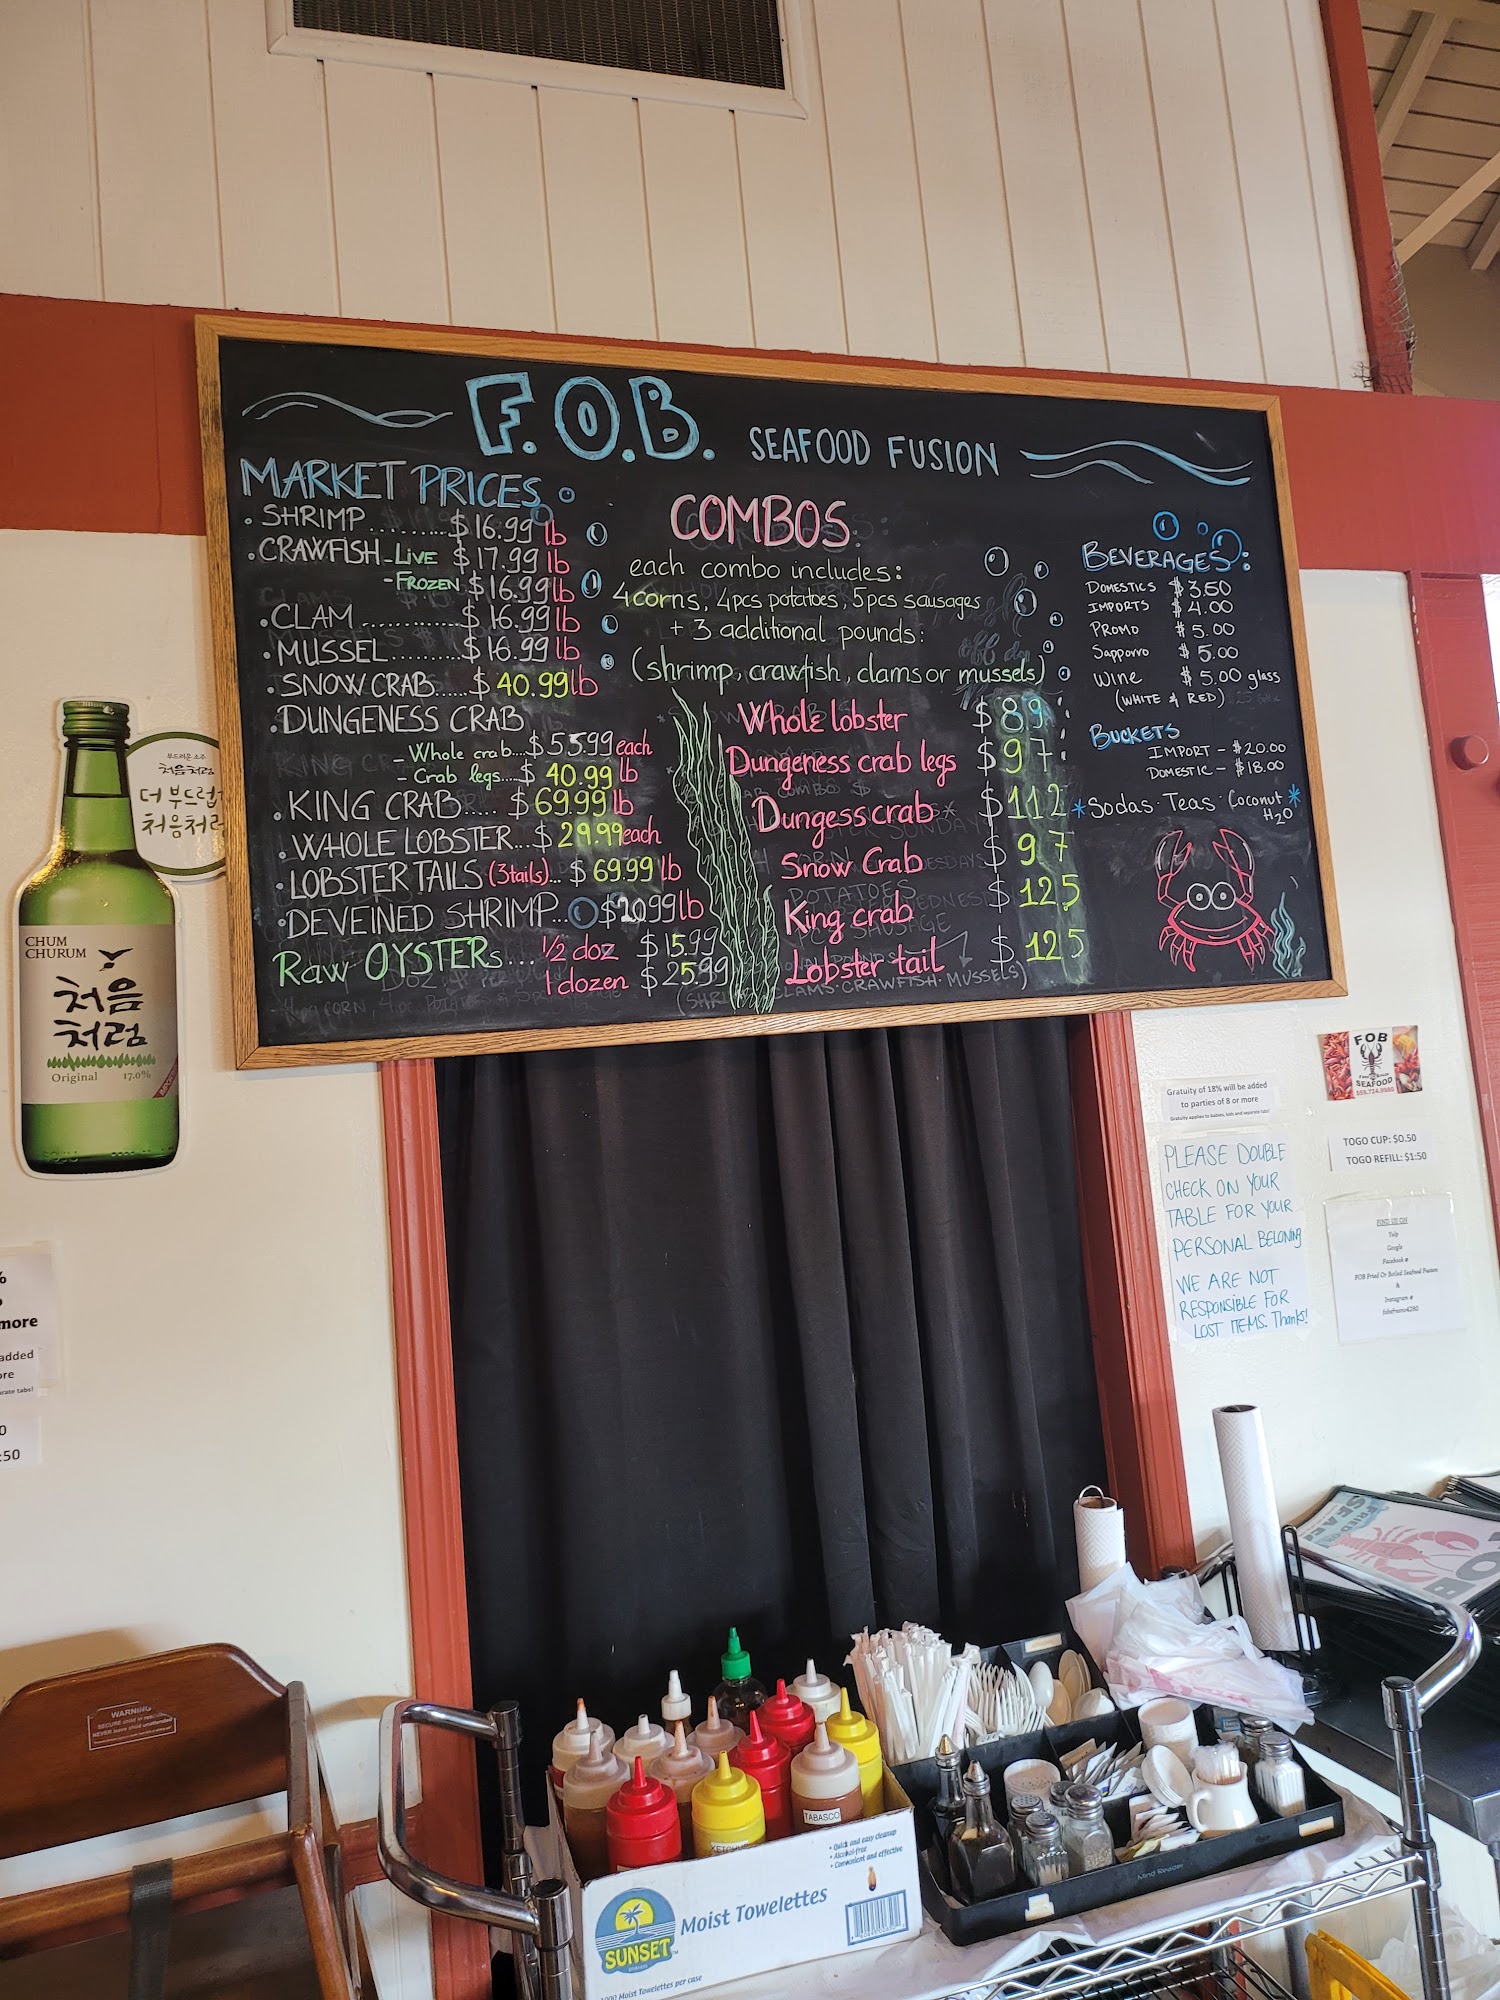 F.O.B. SEAFOOD FUSION
MARKET PRICES
• SHRIMP......... $16.99 lb
• CRAWFISH - LIVE $17.99 lb
- FROZEN $16.99 lb
• CLAM ............ $16.99 lb
• MUSSEL......... $16.99 lb
• SNOW CRAB...... $40.99 lb
• DUNGENESS CRAB
- Whole crab.... $55.99 each
- Crab legs.... $40.99 lb
• KING CRAB..... $69.99 lb
• WHOLE LOBSTER... $29.99 each
• LOBSTER TAILS (3tails)... $69.99 lb
• DEVEINED SHRIMP... $20.99 lb
Raw OYSTERs... 1/2 doz $15.99
1 dozen $25.99
COMBOS
each combo includes:
4 corns, 4pcs potatoes, 5pcs sausages
+ 3 additional pounds:
(shrimp, crawfish, clams or mussels)
Whole lobster $89
Dungeness crab legs $97
Dungess crab $112
Snow Crab $97
King crab $125
Lobster tail $125
BEVERAGES:
DOMESTICS $3.50
IMPORTS $4.00
PROMO $5.00
Sapporro $5.00
WINE $5.00 glass
(WHITE & RED)
BUCKETS
IMPORT - $20.00
DOMESTIC - $18.00
*Sodas · Teas · Coconut H2O*
부드러운 소주
처음처럼
더 부드럽
처음처럼
CHUM
CHURUM
처음
처럼
Original 17.0%
more
added
ore
arate tabs!
:50
Gratuity of 18% will be added
to parties of 8 or more
Gratuity applies to babies, kids and separate tabs!
PLEASE DOUBLE
CHECK ON YOUR
TABLE FOR YOUR
PERSONAL BELONING
WE ARE NOT
RESPONSIBLE FOR
LOST ITEMS. Thanks!
FOB
SEAFOOD
TOGO CUP: $0.50
TOGO REFILL: $1:50
FIND US ON
Yelp
Google
Facebook #
FOB Fried Or Boiled Seafood Fusion
&
Instagram #
WARNING
TABASCO
KETCHUP
• Quick and easy cleanup
• Alcohol-free
• Convenient and effective
SUNSET
Moist Towelettes
1000 Moist Towelettes per case
Mind Reader
FOB